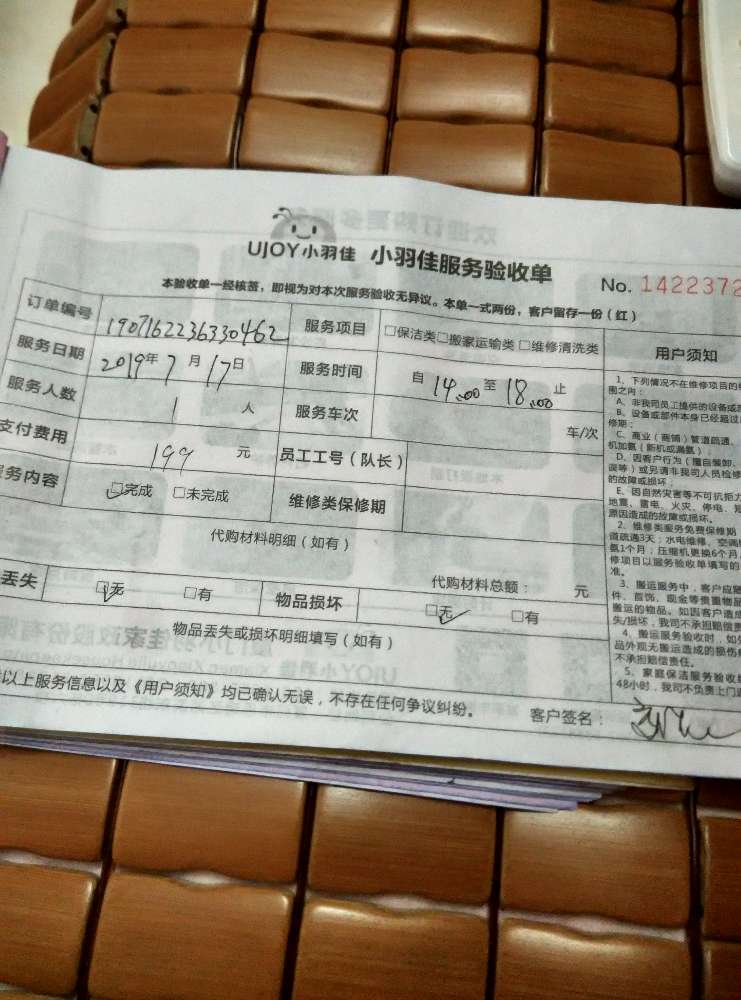 UJOY小羽佳 小羽佳服务验收单
No. 1422372
本验收单一经核签，即视为对本次服务验收无异议。本单一式两份，客户留存一份（红）
订单编号 190716223633 0462 服务项目 □保洁类□搬家运输类□维修清洗类
服务日期 2019年7月17日 服务时间 自14:00至18:00止
服务人数 1 人 服务车次 车/次
支付费用 199 元 员工工号（队长）
务内容 ☑完成 □未完成 维修类保修期
代购材料明细（如有）
代购材料总额： 元
丢失 ☑无 □有 物品损坏 ☑无 □有
物品丢失或损坏明细填写（如有）
以上服务信息以及《用户须知》均已确认无误，不存在任何争议纠纷。
客户签名：
用户须知
1、下列情况不在维修项目的
围之内：
A、非我司员工提供的设备或
B、设备或部件本身已经超过
修期；
C、商业（商铺）管道疏通、
机加氨（新机或漏氨）；
D、因客户行为（擅自装卸、
误等）或另请非我司人员检修
的故障或损坏；
E、因自然灾害等不可抗拒力
地震、雷电、火灾、停电、短
原因造成的故障或损坏。
2、维修类服务免费保修期
道疏通3天；水电维修、空调
氨1个月；压缩机更换6个月
修项目以服务验收单填写的
准。
3、搬运服务中，客户应
件、首饰、现金等贵重物品
搬运的物品。如因客户造成
失/损坏，我司不承担赔偿责
4、搬运服务验收时，如
品外观无搬运造成的损伤
不承担赔偿责任。
5、家庭保洁服务验收
48小时，我司不负责上门